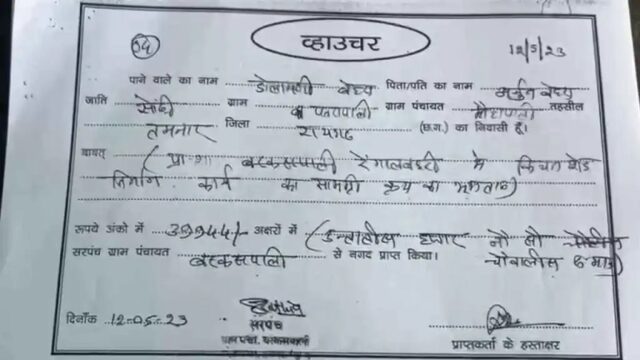 54
व्हाउचर
12/5/23
पाने वाले का नाम डोलामणी वैष्य पिता/पति का नाम अर्जुन वैष्य
जाति सोंढी ग्राम पतरापाली ग्राम पंचायत मौहापाली तहसील
तमनार जिला रायगढ़ (छ.ग.) का निवासी हूँ।
बावत् (प्रा.शा बरकसपाली रेगालबहरी में किचन शेड
निर्माण कार्य का सामग्री क्रय का भुगतान)
रूपये अंको में 39944/- अक्षरों में (उन्तालीस हजार नौ सौ
चौवालीस रु मात्र)
सरपंच ग्राम पंचायत बरकसपाली से नगद प्राप्त किया।
दिनाँक 12-05-23
सरपंच
ग्राम पंचा. बरकसपाली
प्राप्तकर्ता के हस्ताक्षर